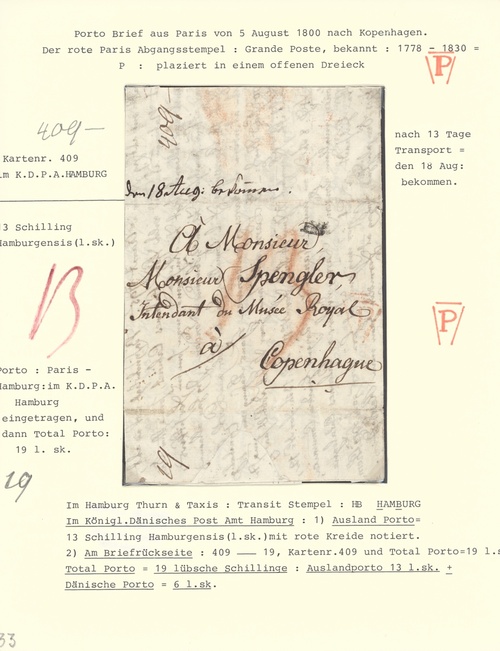 Porto Brief aus Paris von 5 August 1800 nach Kopenhagen.
Der rote Paris Abgangsstempel : Grande Poste, bekannt : 1778 - 1830 =
P : plaziert in einem offenen Dreieck
P
409-
Kartenr. 409
im K.D.P.A.HAMBURG
13 Schilling
Hamburgensis(l.sk.)
13
Porto : Paris -
Hamburg:im K.D.P.A.
Hamburg
eingetragen, und
dann Total Porto:
19 l. sk.
19
409-
den 18 Aug: bekommen.
À Monsieur,
Monsieur Spengler,
Intendant du Musée Royal
à
Copenhague
19
nach 13 Tage
Transport =
den 18 Aug:
bekommen.
P
Im Hamburg Thurn & Taxis : Transit Stempel : HB HAMBURG
Im Königl.Dänisches Post Amt Hamburg : 1) Ausland Porto=
13 Schilling Hamburgensis(l.sk.)mit rote Kreide notiert.
2) Am Briefrückseite : 409 —— 19, Kartenr.409 und Total Porto=19 l.s
Total Porto = 19 lübsche Schillinge : Auslandporto 13 l.sk. +
Dänische Porto = 6 l.sk.
33